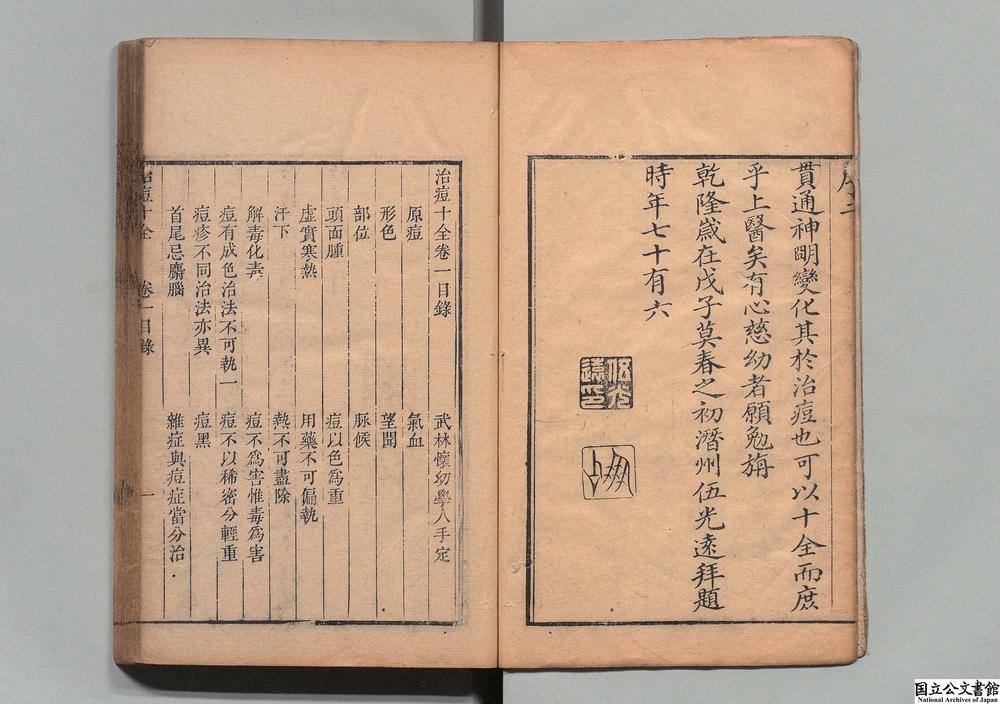 序二
貫通神明變化其於治痘也可以十全而庶
乎上醫矣有心慈幼者願勉旃
乾隆歲在戊子莫春之初潛州伍光遠拜題
時年七十有六
伍光
遠印
治痘十全卷一目錄
武林懷幼學人手定
原痘
氣血
形色
望聞
部位
脈候
頭面腫
痘以色為重
虛實寒熱
用藥不可偏執
汗下
熱不可盡除
解毒化毒
痘不爲害惟毒爲害
痘有成色治法不可執一
痘不以稀密分輕重
痘疹不同治法亦異
痘黑
首尾忌麝腦
雜症與痘症當分治
治痘十全
卷一目錄
一
国立公文書館
National Archives of Japan